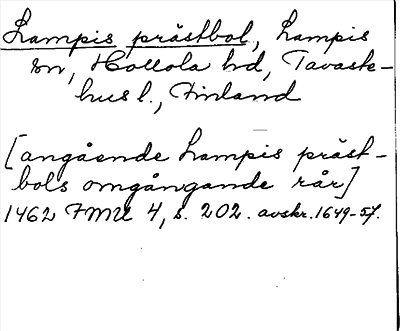 Lampis prästbol, Lampis
sn, Hollola hd, Tavaste-
hus l., Finland
[angående Lampis präst-
bols omgångande rår]
1462 FMU 4, s. 202. avskr. 1649-57.